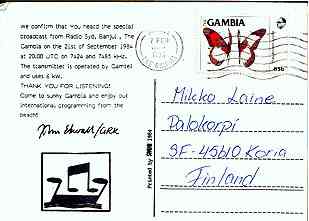 We confirm that you heard the special
broadcast from Radio Syd, Banjul, The
Gambia on the 21st of September 1984
at 20.00 UTC on 7424 and 7485 kHz.
The transmitter is operated by Gamtel
and uses 6 kW.
THANK YOU FOR LISTENING!
Come to sunny Gambia and enjoy out
international programming from the
beach!
Printed by 1984
THE GAMBIA
85b
Mikko Laine
Palokorpi
SF-45610 Koria
Finland